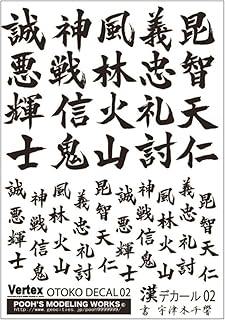 昆智天仁
義忠礼討
風林火山
神戦信鬼
誠悪輝士
昆智天仁
義忠礼討
風林火山
神戦信鬼
誠悪輝士
昆智天仁
義忠礼討
風林火山
神戦信鬼
誠悪輝士
Vertex OTOKO DECAL 02
POOH'S MODELING WORKS©
漢デカール 02
書 宇津木千響